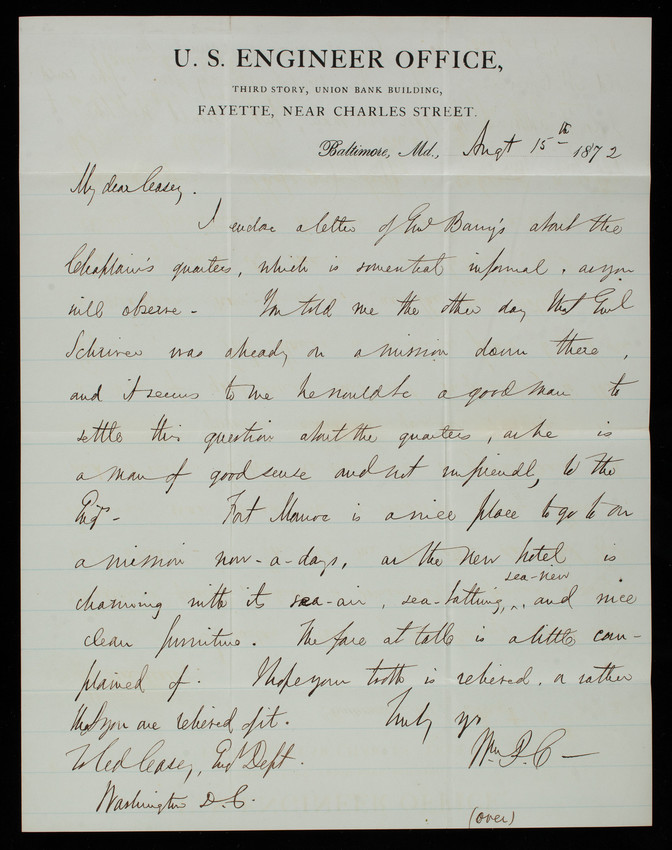 U. S. ENGINEER OFFICE,
THIRD STORY, UNION BANK BUILDING,
FAYETTE, NEAR CHARLES STREET.
Baltimore, Md., Augt 15th 1872
My dear Casey.
I enclose a letter of Genl Barry's about the
Chaplain's quarters, which is somewhat informal, as you
will observe - You told me the other day that Genl
Schriver was already on a mission down there,
and it seems to me he would be a good man to
settle this question about the quarters, as he is
a man of good sense and not unfriendly to the
Engrs - Fort Monroe is a nice place to go to on
a mission now-a-days, as the new hotel is
sea-view
charming with its sea-air, sea-bathing, ^ and nice
clean furniture. The fare at table is a little com-
plained of. I hope your tooth is relieved, or rather
that you are relieved of it. Truly yrs
To Col Casey, Engr Dept. Wm P. C -
Washington D.C.
(over)